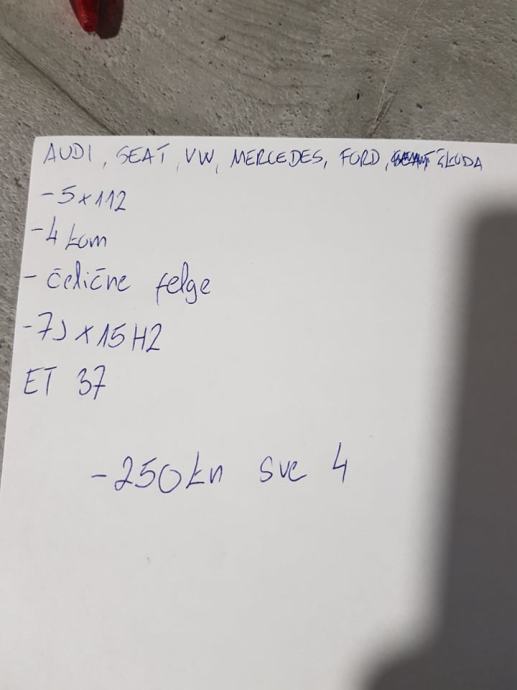 AUDI, SEAT, VW, MERCEDES, FORD, ŠKODA
-5x112
-4 kom
- čelične felge
-7J x 15 H2
ET 37
-250 kn sve 4